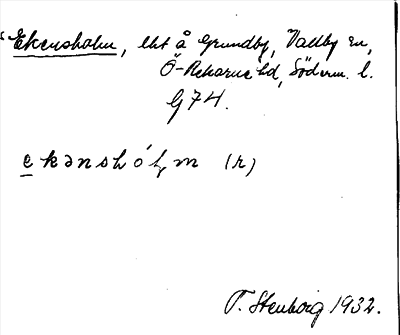 Ekensholm, lht å Grundby, Vallby sn,
Ö-Rekarne hd, Söderm. l.
G 74.
ekənshólm (r)
T. Stenborg 1932.